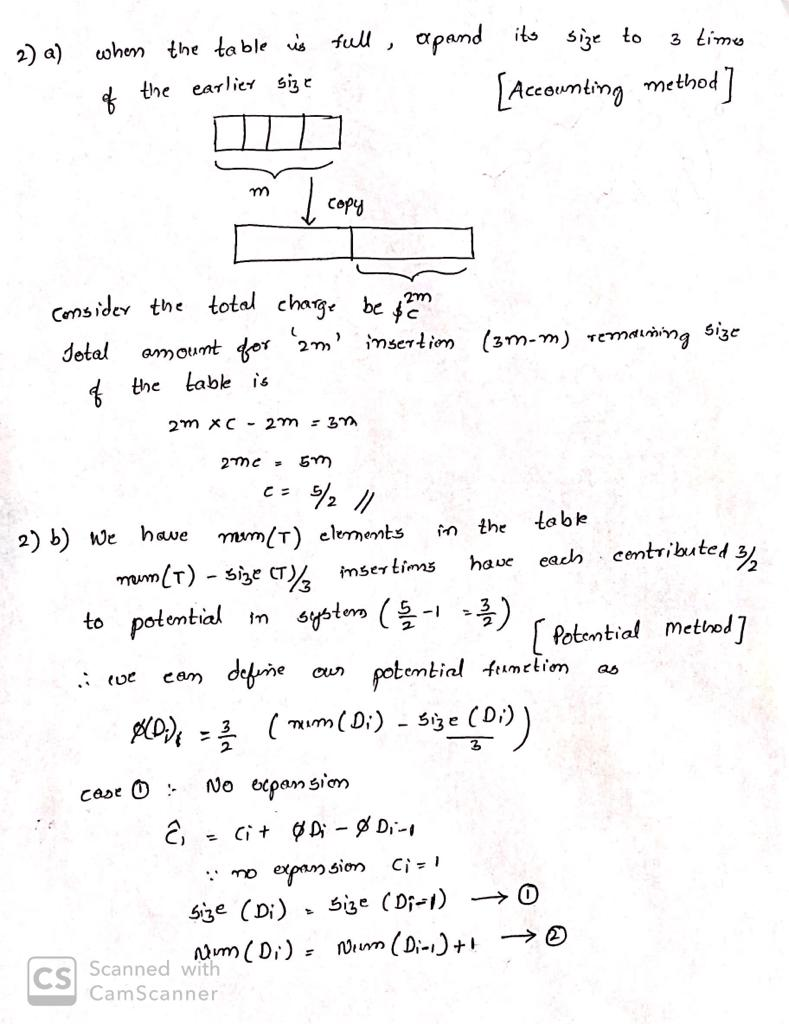 2) a) when the table is full, expand its size to 3 times
of the earlier size [Accounting method]
m
copy
2m
Consider the total charge be $c
Total amount for '2m' insertion (3m-m) remaining size
of the table is
2m x c - 2m = 3m
2mc = 5m
c = 5/2 //
2) b) We have num(T) elements in the table
num(T) - size(T)/3 insertions have each contributed 3/2
to potential in system (5/2 - 1 = 3/2) [Potential Method]
∴ we can define our potential function as
Ø(Di) = 3/2 (num(Di) - size(Di)/3)
case ① :- No expansion
Ĉi = Ci + ØDi - ØDi-1
∵ no expansion Ci = 1
size (Di) = size (Di-1) → ①
Num (Di) = Num (Di-1)+1 → ②
CS Scanned with
CamScanner